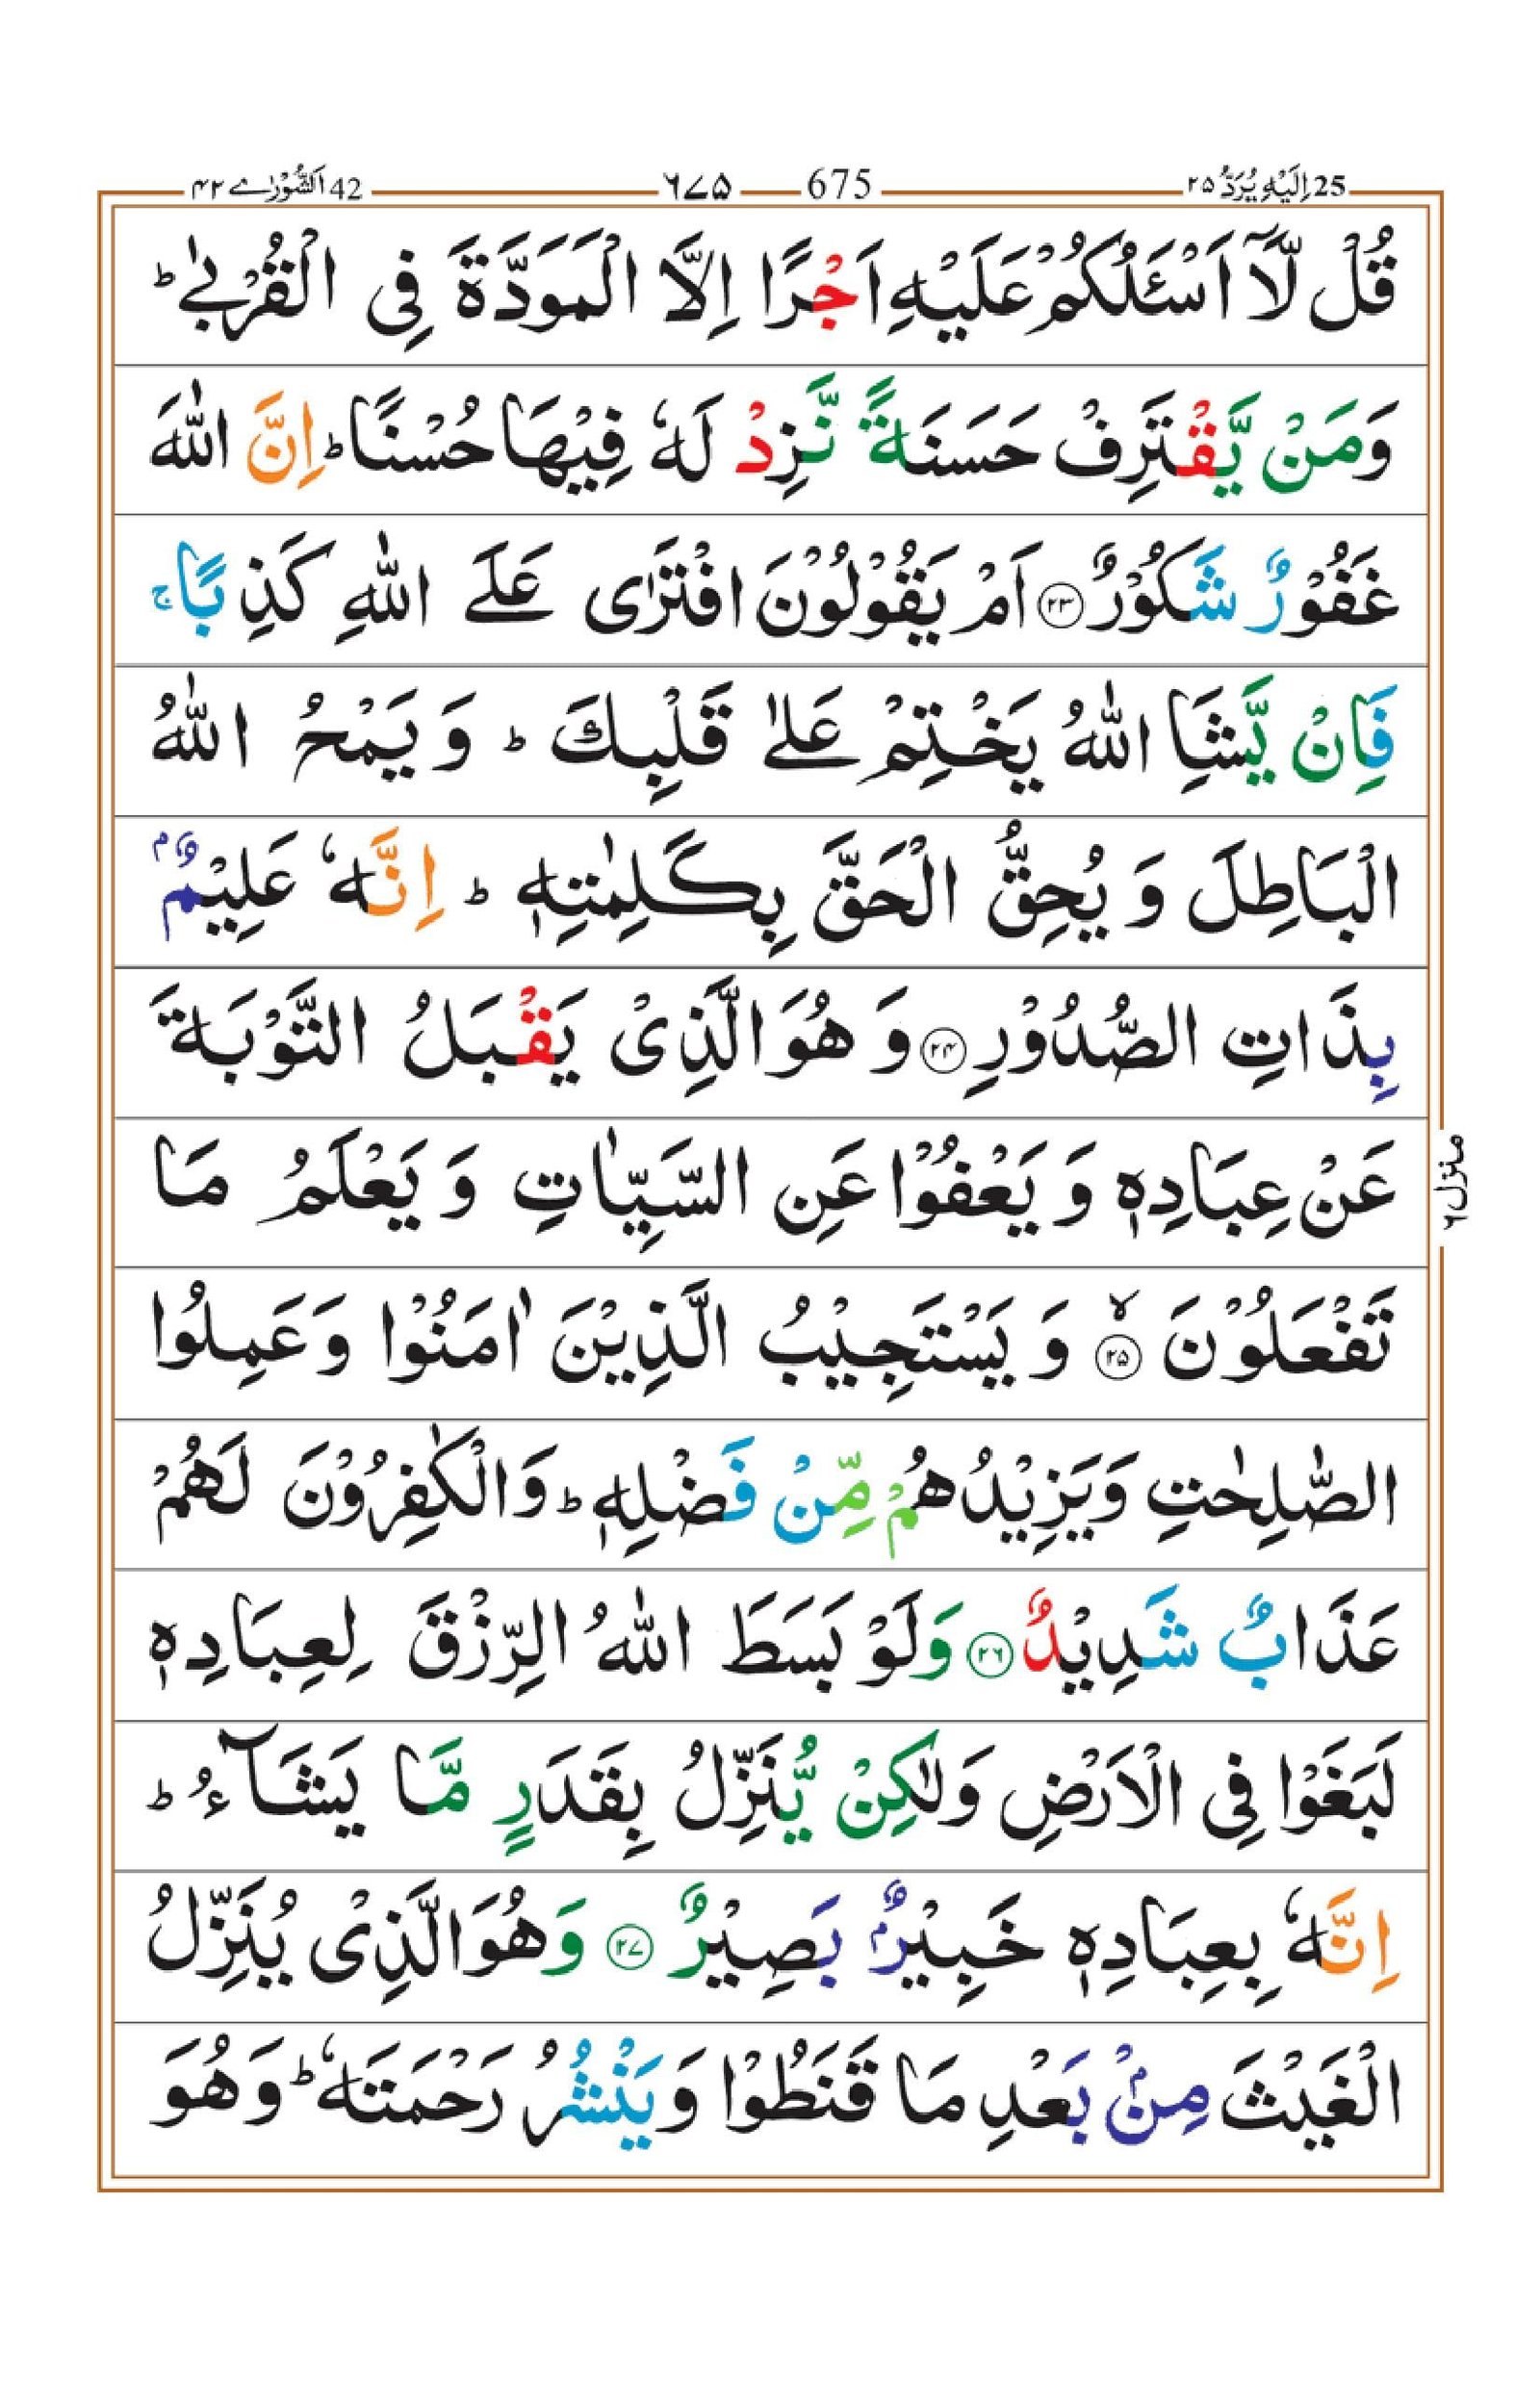 25 اِلَیْهِ یُرَدُّ ۲۵ 675 ۶۷۵ 42 اَلشُّوْرٰی ۴۲
قُلْ لَّاۤ اَسْـَٔلُكُمْ عَلَیْهِ اَجْرًا اِلَّا الْمَوَدَّةَ فِی الْقُرْبٰیؕ
وَمَنْ یَّقْتَرِفْ حَسَنَةً نَّزِدْ لَهٗ فِیْهَا حُسْنًاؕ اِنَّ اللّٰهَ
غَفُوْرٌ شَكُوْرٌ ۝۲۳ اَمْ یَقُوْلُوْنَ افْتَرٰی عَلَی اللّٰهِ كَذِبًاۚ
فَاِنْ یَّشَاِ اللّٰهُ یَخْتِمْ عَلٰی قَلْبِكَؕ وَ یَمْحُ اللّٰهُ
الْبَاطِلَ وَ یُحِقُّ الْحَقَّ بِكَلِمٰتِهٖؕ اِنَّهٗ عَلِیْمٌۢ
بِذَاتِ الصُّدُوْرِ ۝۲۴ وَ هُوَ الَّذِیْ یَقْبَلُ التَّوْبَةَ
عَنْ عِبَادِهٖ وَ یَعْفُوْا عَنِ السَّیِّاٰتِ وَ یَعْلَمُ مَا
تَفْعَلُوْنَ ۝۲۵ۙ وَ یَسْتَجِیْبُ الَّذِیْنَ اٰمَنُوْا وَعَمِلُوا
الصّٰلِحٰتِ وَیَزِیْدُهُمْ مِّنْ فَضْلِهٖؕ وَالْكٰفِرُوْنَ لَهُمْ
عَذَابٌ شَدِیْدٌ ۝۲۶ وَلَوْ بَسَطَ اللّٰهُ الرِّزْقَ لِعِبَادِهٖ
لَبَغَوْا فِی الْاَرْضِ وَلٰكِنْ یُّنَزِّلُ بِقَدَرٍ مَّا یَشَآءُؕ
اِنَّهٗ بِعِبَادِهٖ خَبِیْرٌۢ بَصِیْرٌ ۝۲۷ وَهُوَ الَّذِیْ یُنَزِّلُ
الْغَیْثَ مِنْۢ بَعْدِ مَا قَنَطُوْا وَیَنْشُرُ رَحْمَتَهٗؕ وَهُوَ
منزل۶